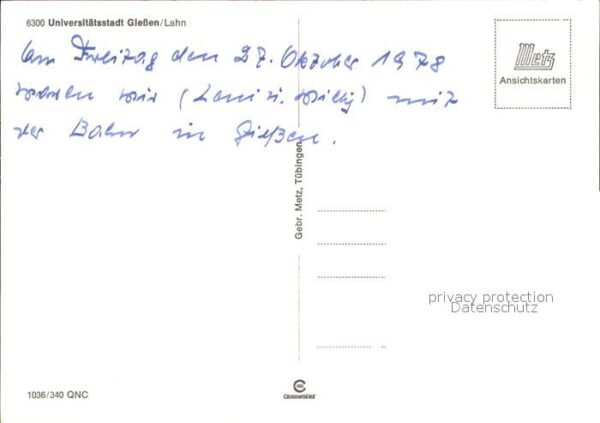 6300 Universitätsstadt Gießen/Lahn
Am Freitag den 27. Oktober 1978
waren wir (Leni u. Willy) mit
der Bahn in Gießen.
Metz
Ansichtskarten
Gebr. Metz, Tübingen
privacy protection
Datenschutz
1036/340 QNC